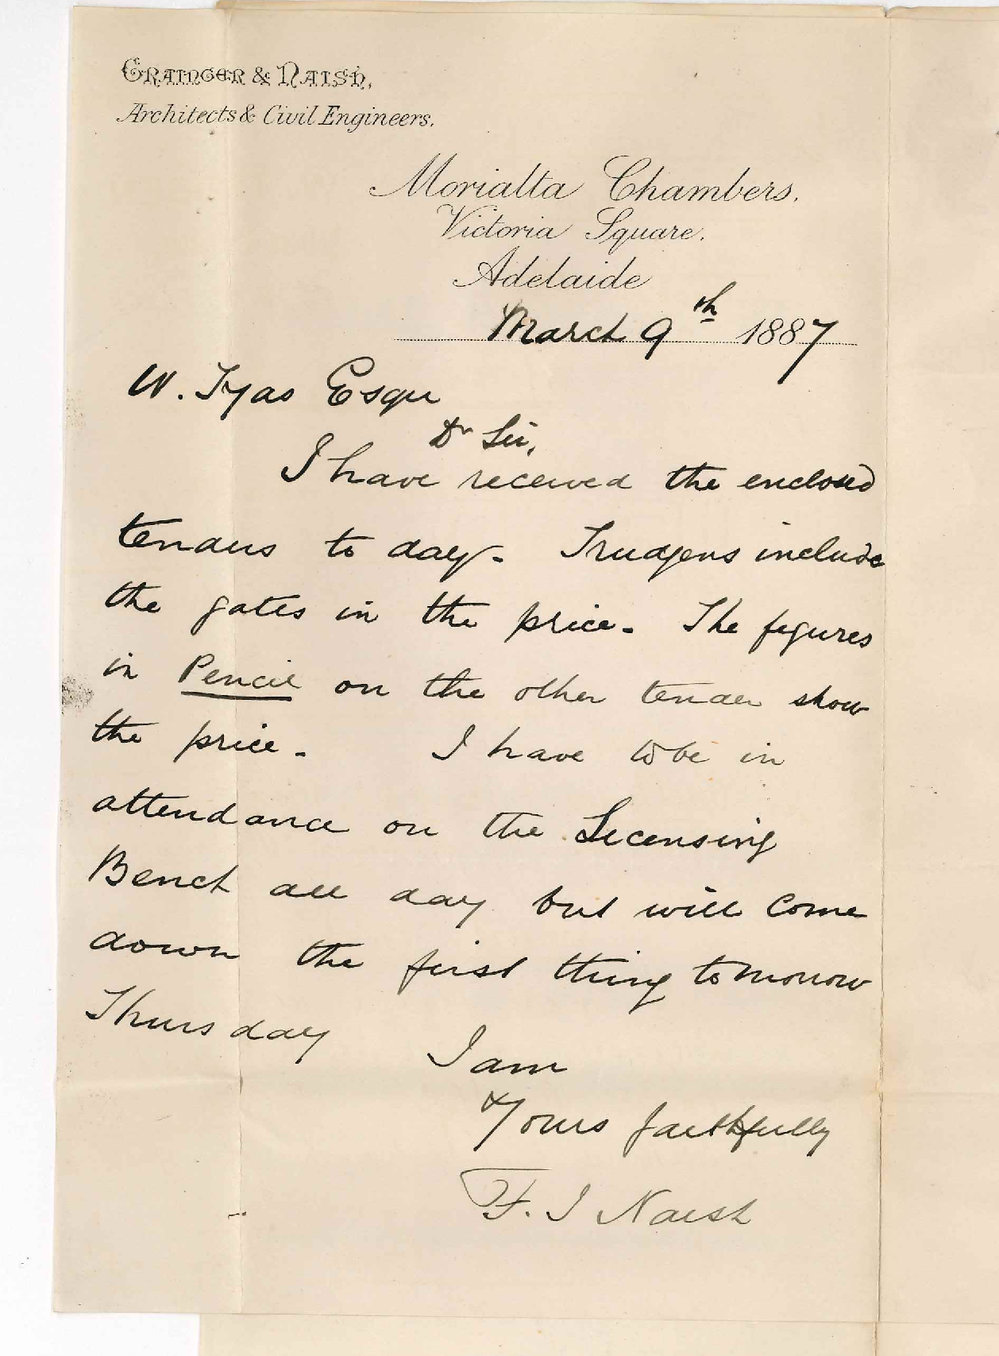 GRAINGER & NAISH,
Architects & Civil Engineers.
Morialta Chambers.
Victoria Square.
Adelaide
March 9th 1887
W. Tyas Esqre
Dr Sir,
I have received the enclosed
tenders to day. Trudgens include
the gates in the price. The figures
in Pencil on the other tender show
the price. I have to be in
attendance on the Licensing
Bench all day but will come
down the first thing tomorrow
Thursday
I am
Yours faithfully
F. J Naish